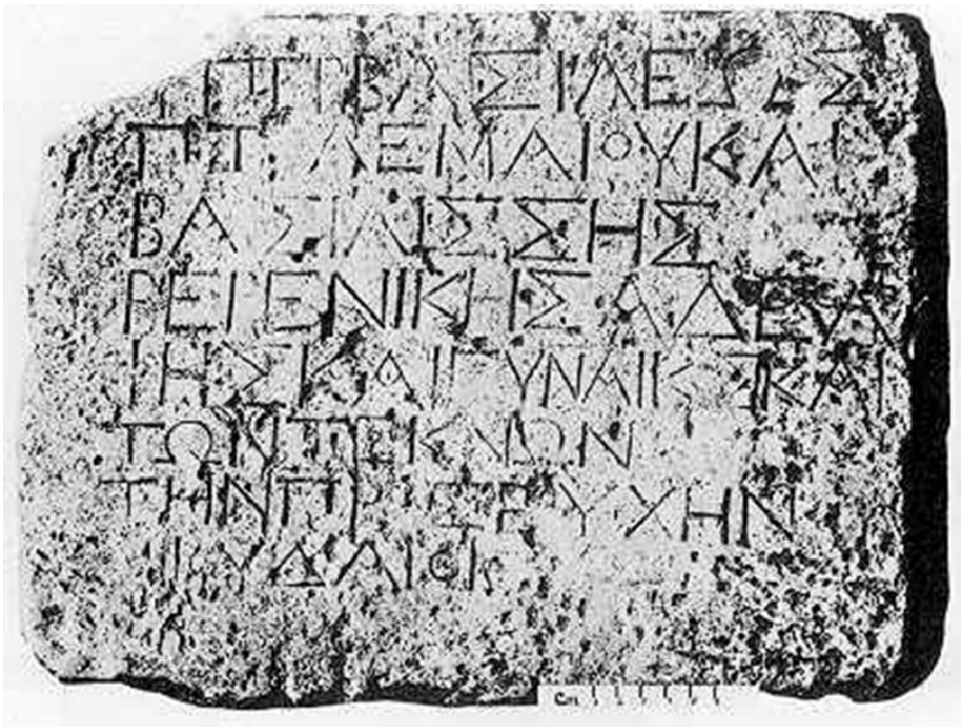 ΥΠΕΡ ΒΑΣΙΛΕΩΣ
ΠΤΟΛΕΜΑΙΟΥ ΚΑΙ
ΒΑΣΙΛΙΣΣΗΣ
ΒΕΡΕΝΙΚΗΣ ΑΔΕΛ
ΦΗΣ ΚΑΙ ΓΥΝΑΙΚΟΣ ΚΑΙ
ΤΩΝ ΤΕΚΝΩΝ
ΤΗΝ ΠΡΟΣΕΥΧΗΝ
ΙΟΥΔΑΙΟΙ
Cm